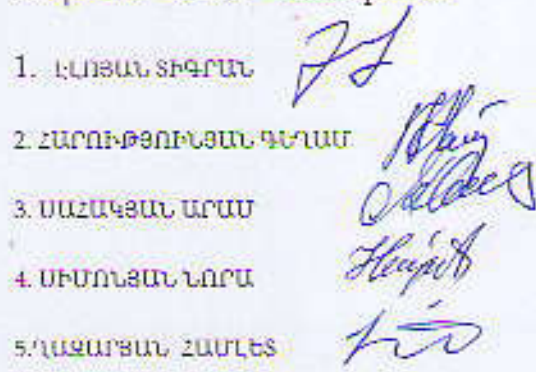 1. ԷԼՈՅԱՆ ՏԻԳՐԱՆ
2. ՀԱՐՈՒԹՅՈՒՆՅԱՆ ԳԵՂԱՄ
3. ՍԱՀԱԿՅԱՆ ԱՐԱՄ
4. ՍԻՄՈՆՅԱՆ ՆՈՐԱ
5. ՂԱԶԱՐՅԱՆ ՀԱՄԼԵՏ